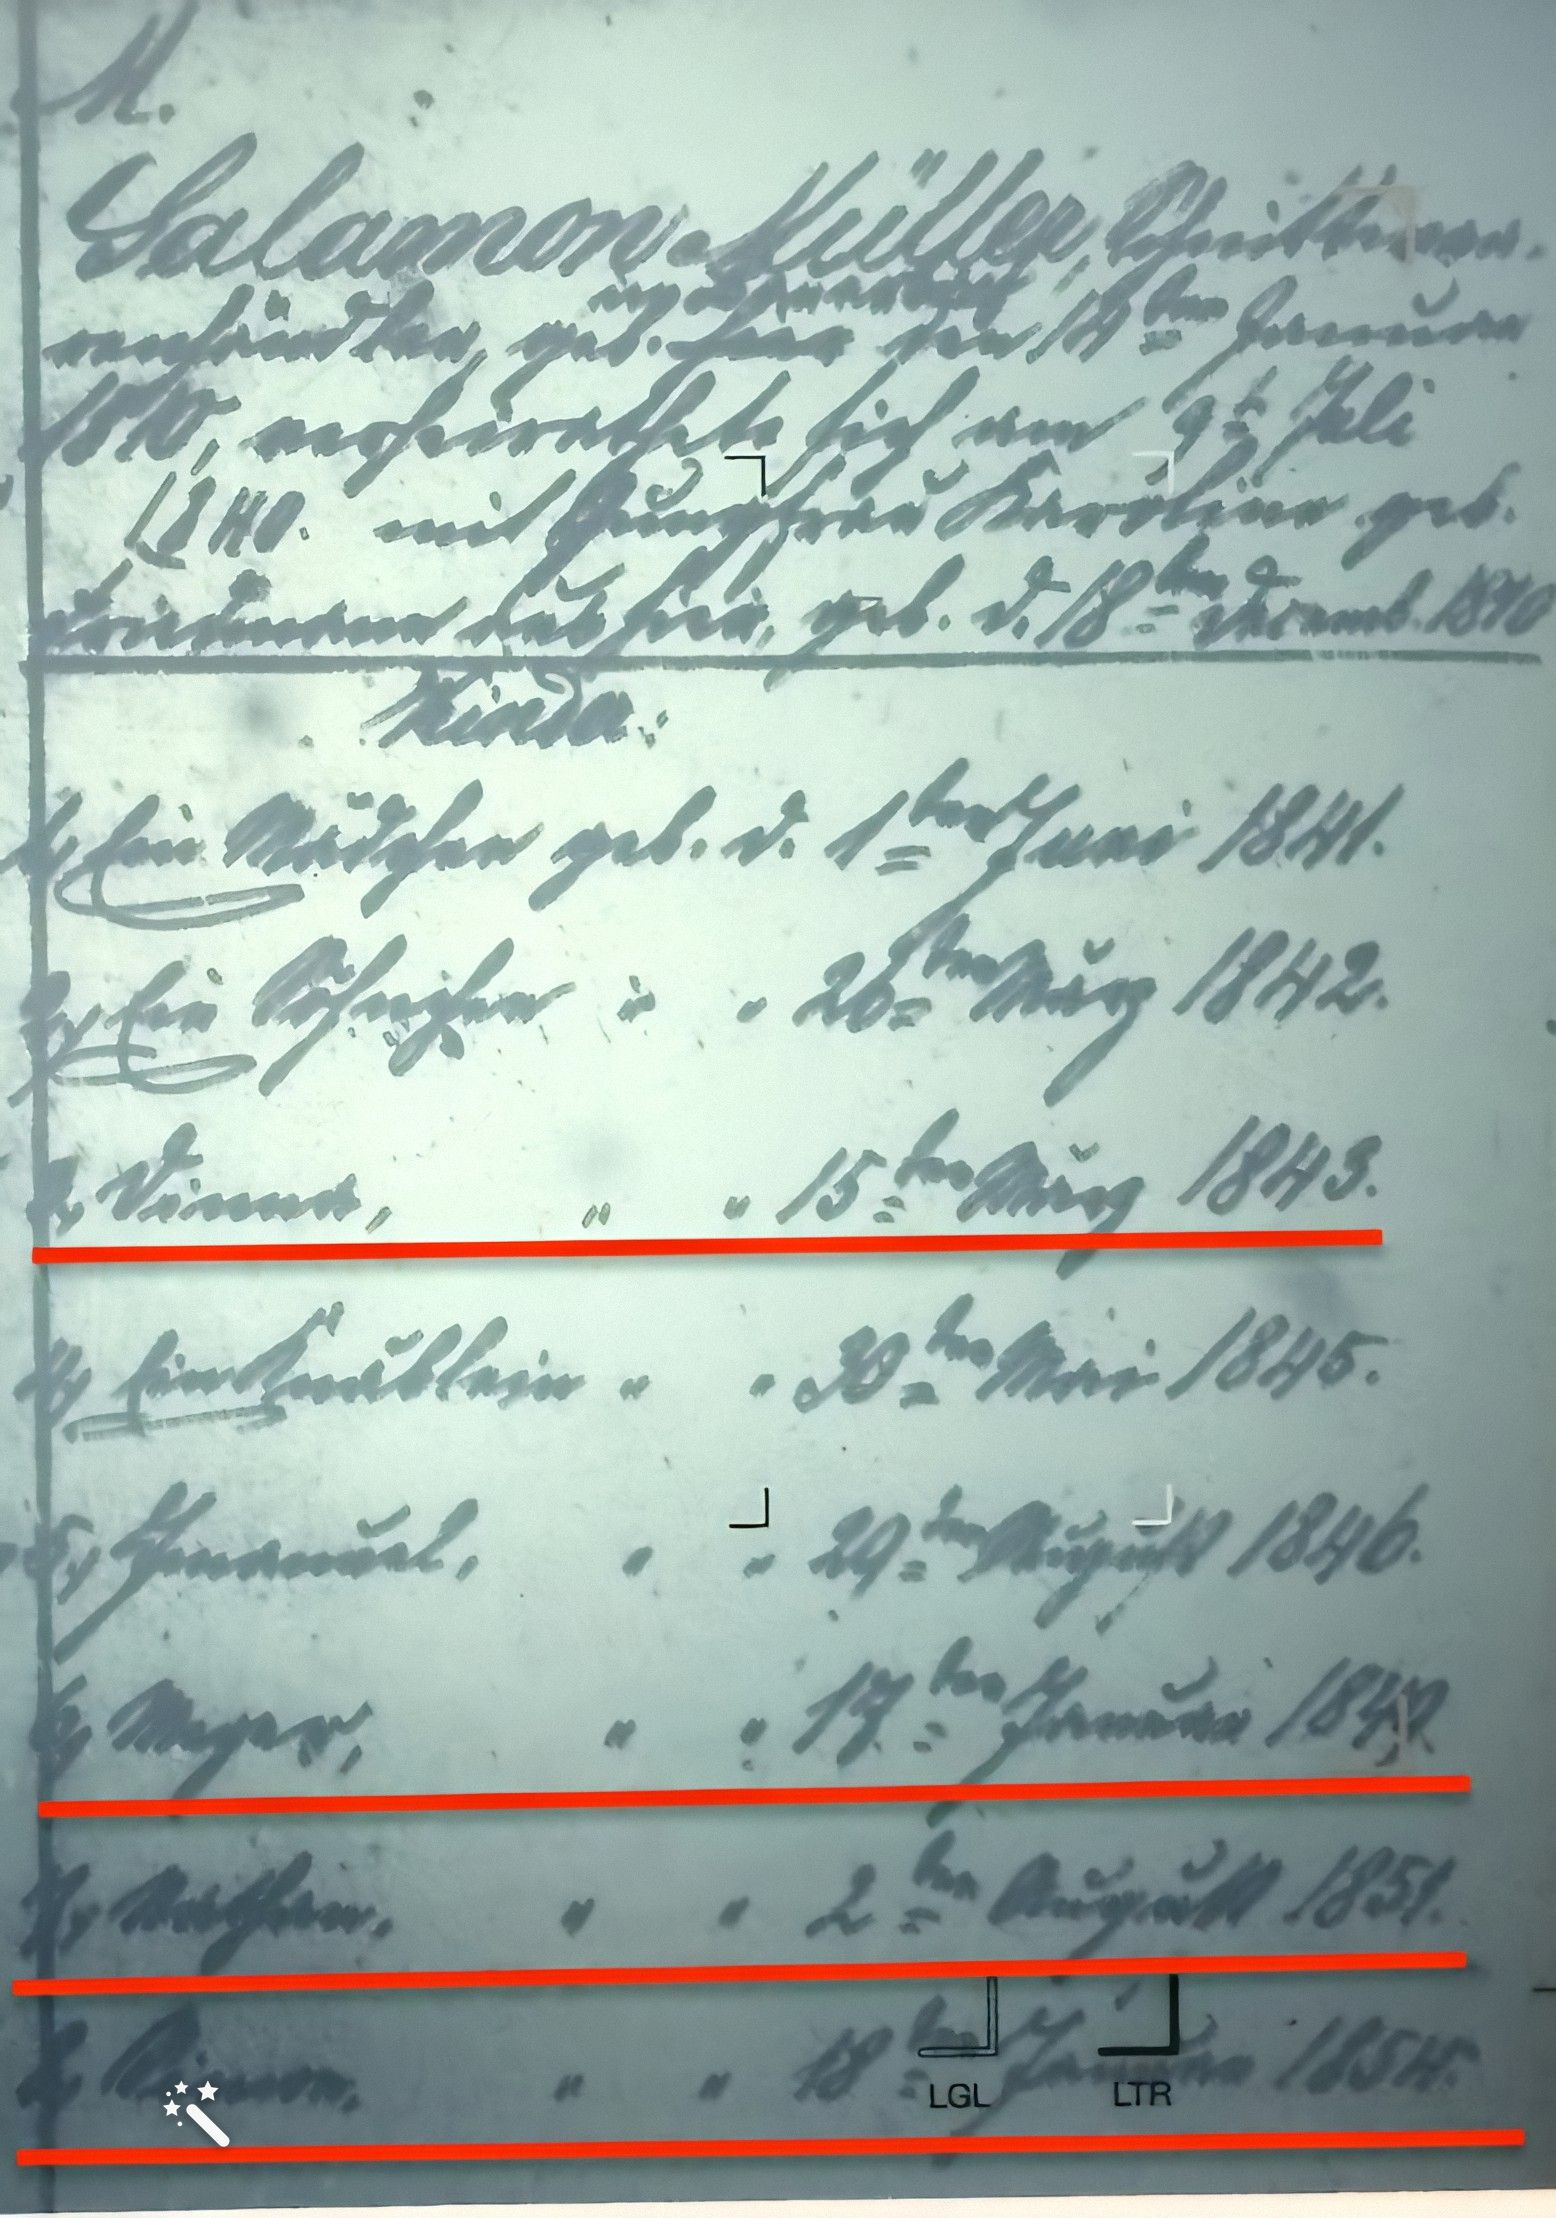 M.
Salamon Müller, Schnittwaren-
verhändler, geb. den 14ten Januar
1810, verheirathete sich am 9t Juli
1840. mit Jungfrau Karoline geb.
geb. d. 18ten Decemb. 1810
Kinder:
1, Ein Mädchen geb. d. 1ten Juni 1841.
2, Ein Söhnchen " " 26ten März 1842.
3, " " 15ten März 1843.
4, Ein Knäblein " " 30ten Mai 1845.
5, Emanuel, " " 29ten August 1846.
6, Meyer, " " 17ten Januar
7, Nathan, " " 2ten August 1851.
8, Simon, " " 18ten Januar 1854.
LGL LTR